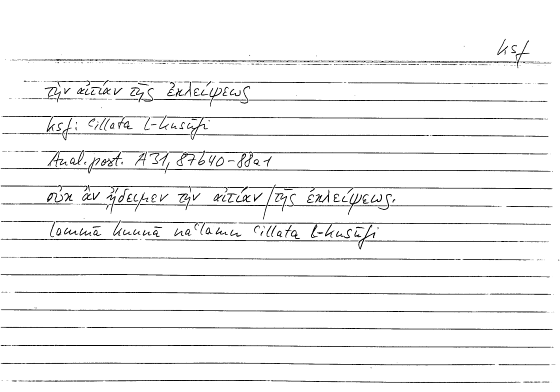 ksf
τὴν αἰτίαν τῆς ἐκλείψεως
ksf: ʿillata l-kusūfi
Anal. post. A 31, 87b40-88a1
οὐκ ἂν ᾔδειμεν τὴν αἰτίαν/τῆς ἐκλείψεως.
lammā kunnā naʿlamu ʿillata l-kusūfi